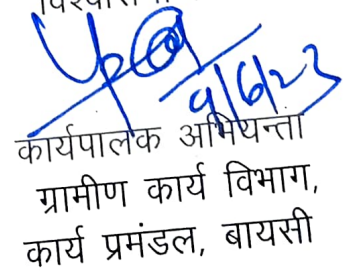 9/6/23
कार्यपालक अभियन्ता
ग्रामीण कार्य विभाग,
कार्य प्रमंडल, बायसी